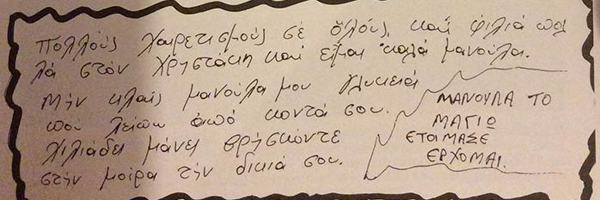 Πολλούς χαιρετισμούς σέ όλους, καί φιλιά πολ
λά στόν Χρηστάκη καί είμαι καλά μανούλα.
Μήν κλαίς μανούλα μου γλυκειά
που λείπω από κοντά σου.
χιλιάδες μάνες βρήσκόντε
στήν μοίρα τήν δικιά σου.
ΜΑΝΟΥΛΑ ΤΟ
ΜΑΓΙΩ
ΕΤΟΙΜΑΣΕ
ΕΡΧΟΜΑΙ.